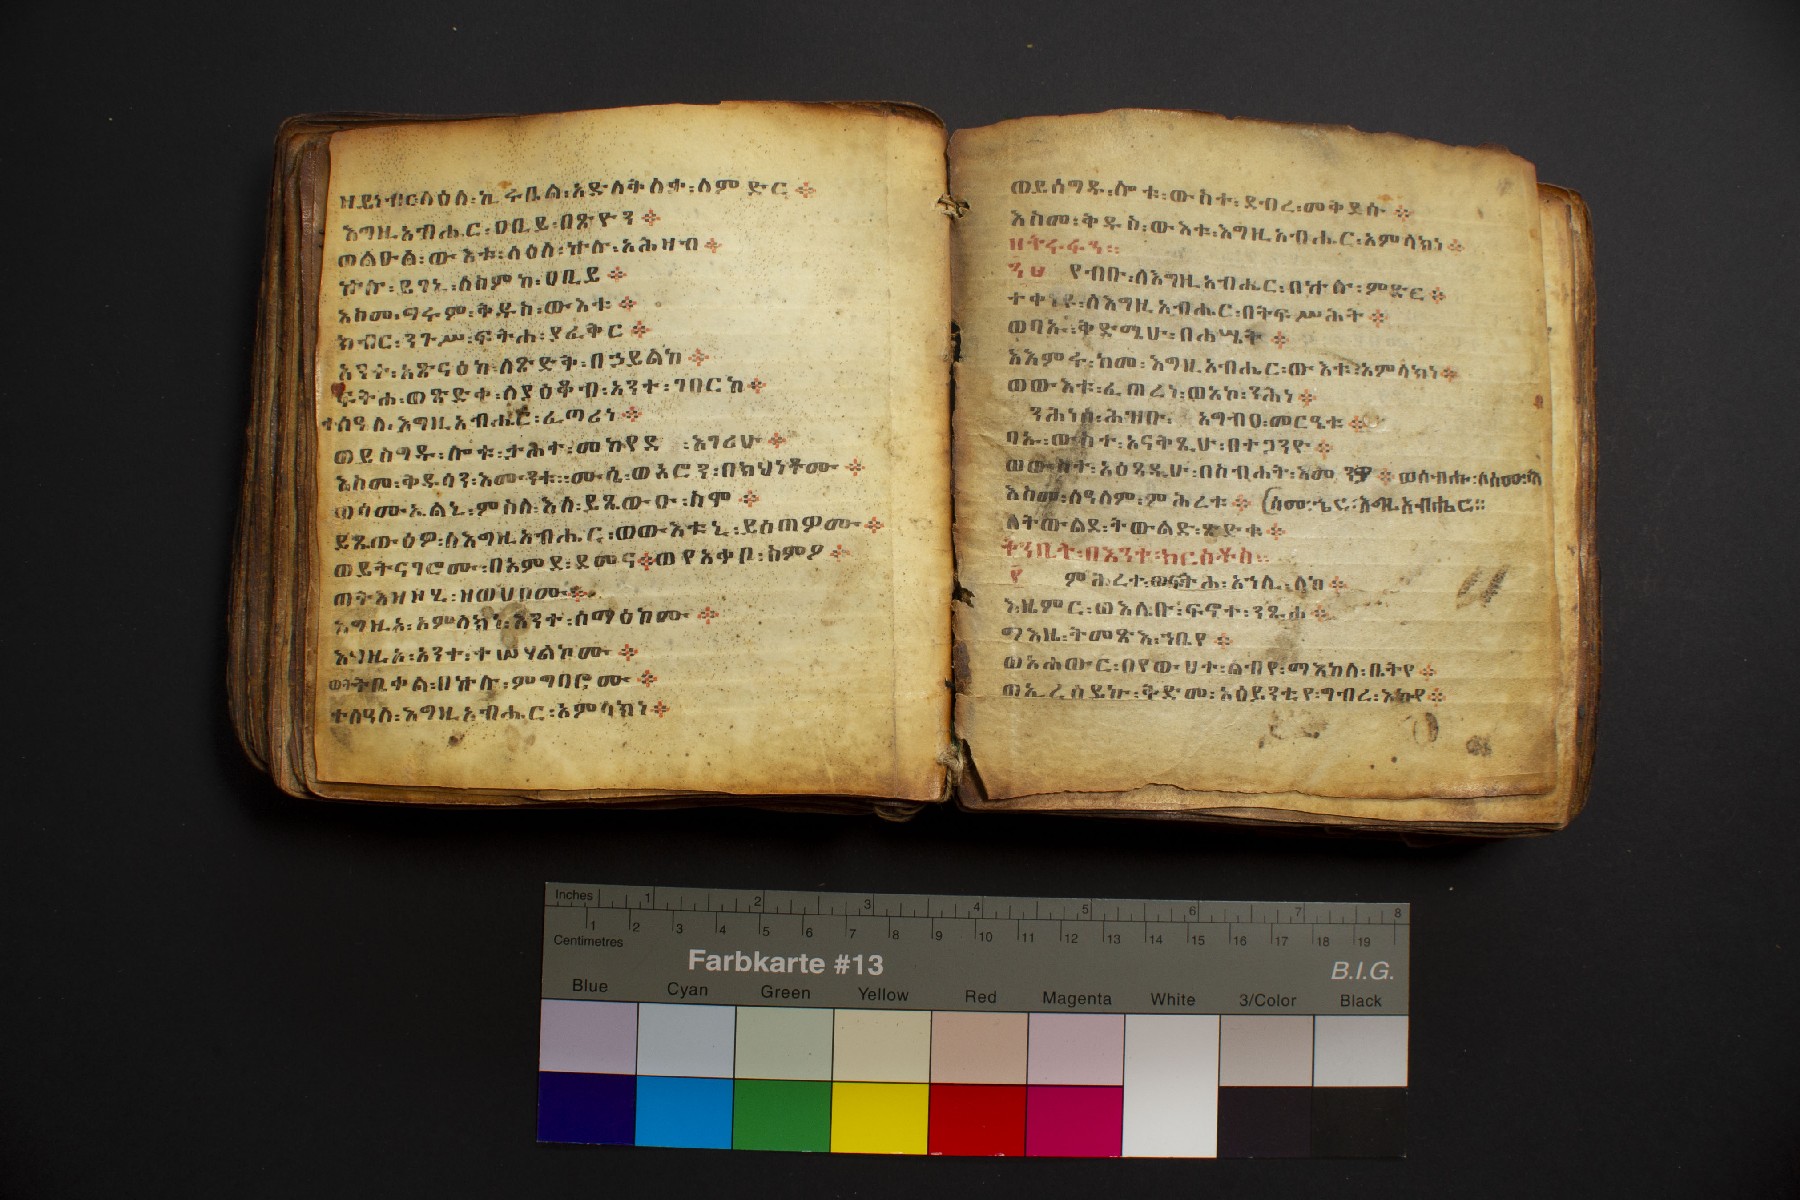 ዘይነብር፡ላዕለ፡ኪሩቤል፡አድለቅለቃ፡ለምድር፨
እግዚአብሔር፡ዐቢይ፡በጽዮን፨
ወልዑል፡ውእቱ፡ላዕለ፡ኵሉ፡አሕዛብ፨
ኵሉ፡ይገኒ፡ለስምከ፡ዐቢይ፨
እስመ፡ግሩም፡ቅዱስ፡ውእቱ፨
ክብር፡ንጉሥ፡ፍትሐ፡ያፈቅር፨
አንተ፡አጽናዕከ፡ለጽድቅ፡በኃይልከ፨
ፍትሐ፡ወጽድቀ፡ለያዕቆብ፡አንተ፡ገበርከ፨
ተለዓለ፡እግዚአብሔር፡ፈጣሪነ፨
ወይስግዱ፡ሎቱ፡ታሕተ፡መከየደ፡እገሪሁ፨
እስመ፡ቅዱሳን፡እሙንቱ፡ሙሴ፡ወአሮን፡በክህነቶሙ፨
ወሳሙኤልኒ፡ምስለ፡እለ፡ይጼውዑ፡ስሞ፨
ይጼውዕዎ፡ለእግዚአብሔር፡ወውእቱኒ፡ይሰጠዎሙ፨
ወይትናገሮሙ፡በአምደ፡ደመና፨ወየአቀቡ፡ስምዖ፨
ወትእዛዞሂ፡ዘወሀቦሙ፨
እግዚኦ፡አምላክነ፡አንተ፡ሰማዕከሙ፨
እግዚኦ፡አንተ፡ተሠሃልኮሙ፨
ወትትቤቀል፡በኵሉ፡ምግባሮሙ፨
ተለዓለ፡እግዚአብሔር፡አምላክነ፨
ወይሰግዱ፡ሎቱ፡ውስተ፡ደብረ፡መቅደሱ፨
እስመ፡ቅዱስ፡ውእቱ፡እግዚአብሔር፡አምላክነ፨
የብቡ፡ለእግዚአብሔር፡በኵሉ፡ምድር፨
ተቀነዩ፡ለእግዚአብሔር፡በትፍሥሕት፨
ወባኡ፡ቅድሜሁ፡በሐሤት፨
አእምሩ፡ከመ፡እግዚአብሔር፡ውእቱ፡አምላክነ፨
ወውእቱ፡ፈጠረነ፡ወአኮ፡ንሕነ፨
ንሕነሰ፡ሕዝቡ፡አባግዐ፡መርዔቱ፨
ባኡ፡ውስተ፡አናቅጺሁ፡በተጋንዮ፨
ወውስተ፡አዕጻዲሁ፡በስብሐት፡እመንዎ፨ወሰብሑ፡ለስሙ፡
እስመ፡ለዓለም፡ምሕረቱ፨(ስሙ፡ኄር፡እግዚአብሔር።
ለትውልደ፡ትውልድ፡ጽድቁ፨
ትንቢት፡በእንተ፡ክርስቶስ።
፻ ምሕረተ፡ወፍትሐ፡አኀሊ፡ለከ፨
እዜምር፡ወእሌቡ፡ፍኖተ፡ንጹሐ፨
ማእዜ፡ትመጽእ፡ኀቤየ፨
ወአሐውር፡በየውሀተ፡ልብየ፡ማእከለ፡ቤትየ፨
ወኢረሰይኩ፡ቅድመ፡አዕይንቲየ፡ግብረ፡እኩየ፨
Inches 1 2 3 4 5 6 7 8
1 2 3 4 5 6 7 8 9 10 11 12 13 14 15 16 17 18 19
Centimetres
Farbkarte #13
B.I.G.
Blue Cyan Green Yellow Red Magenta White 3/Color Black